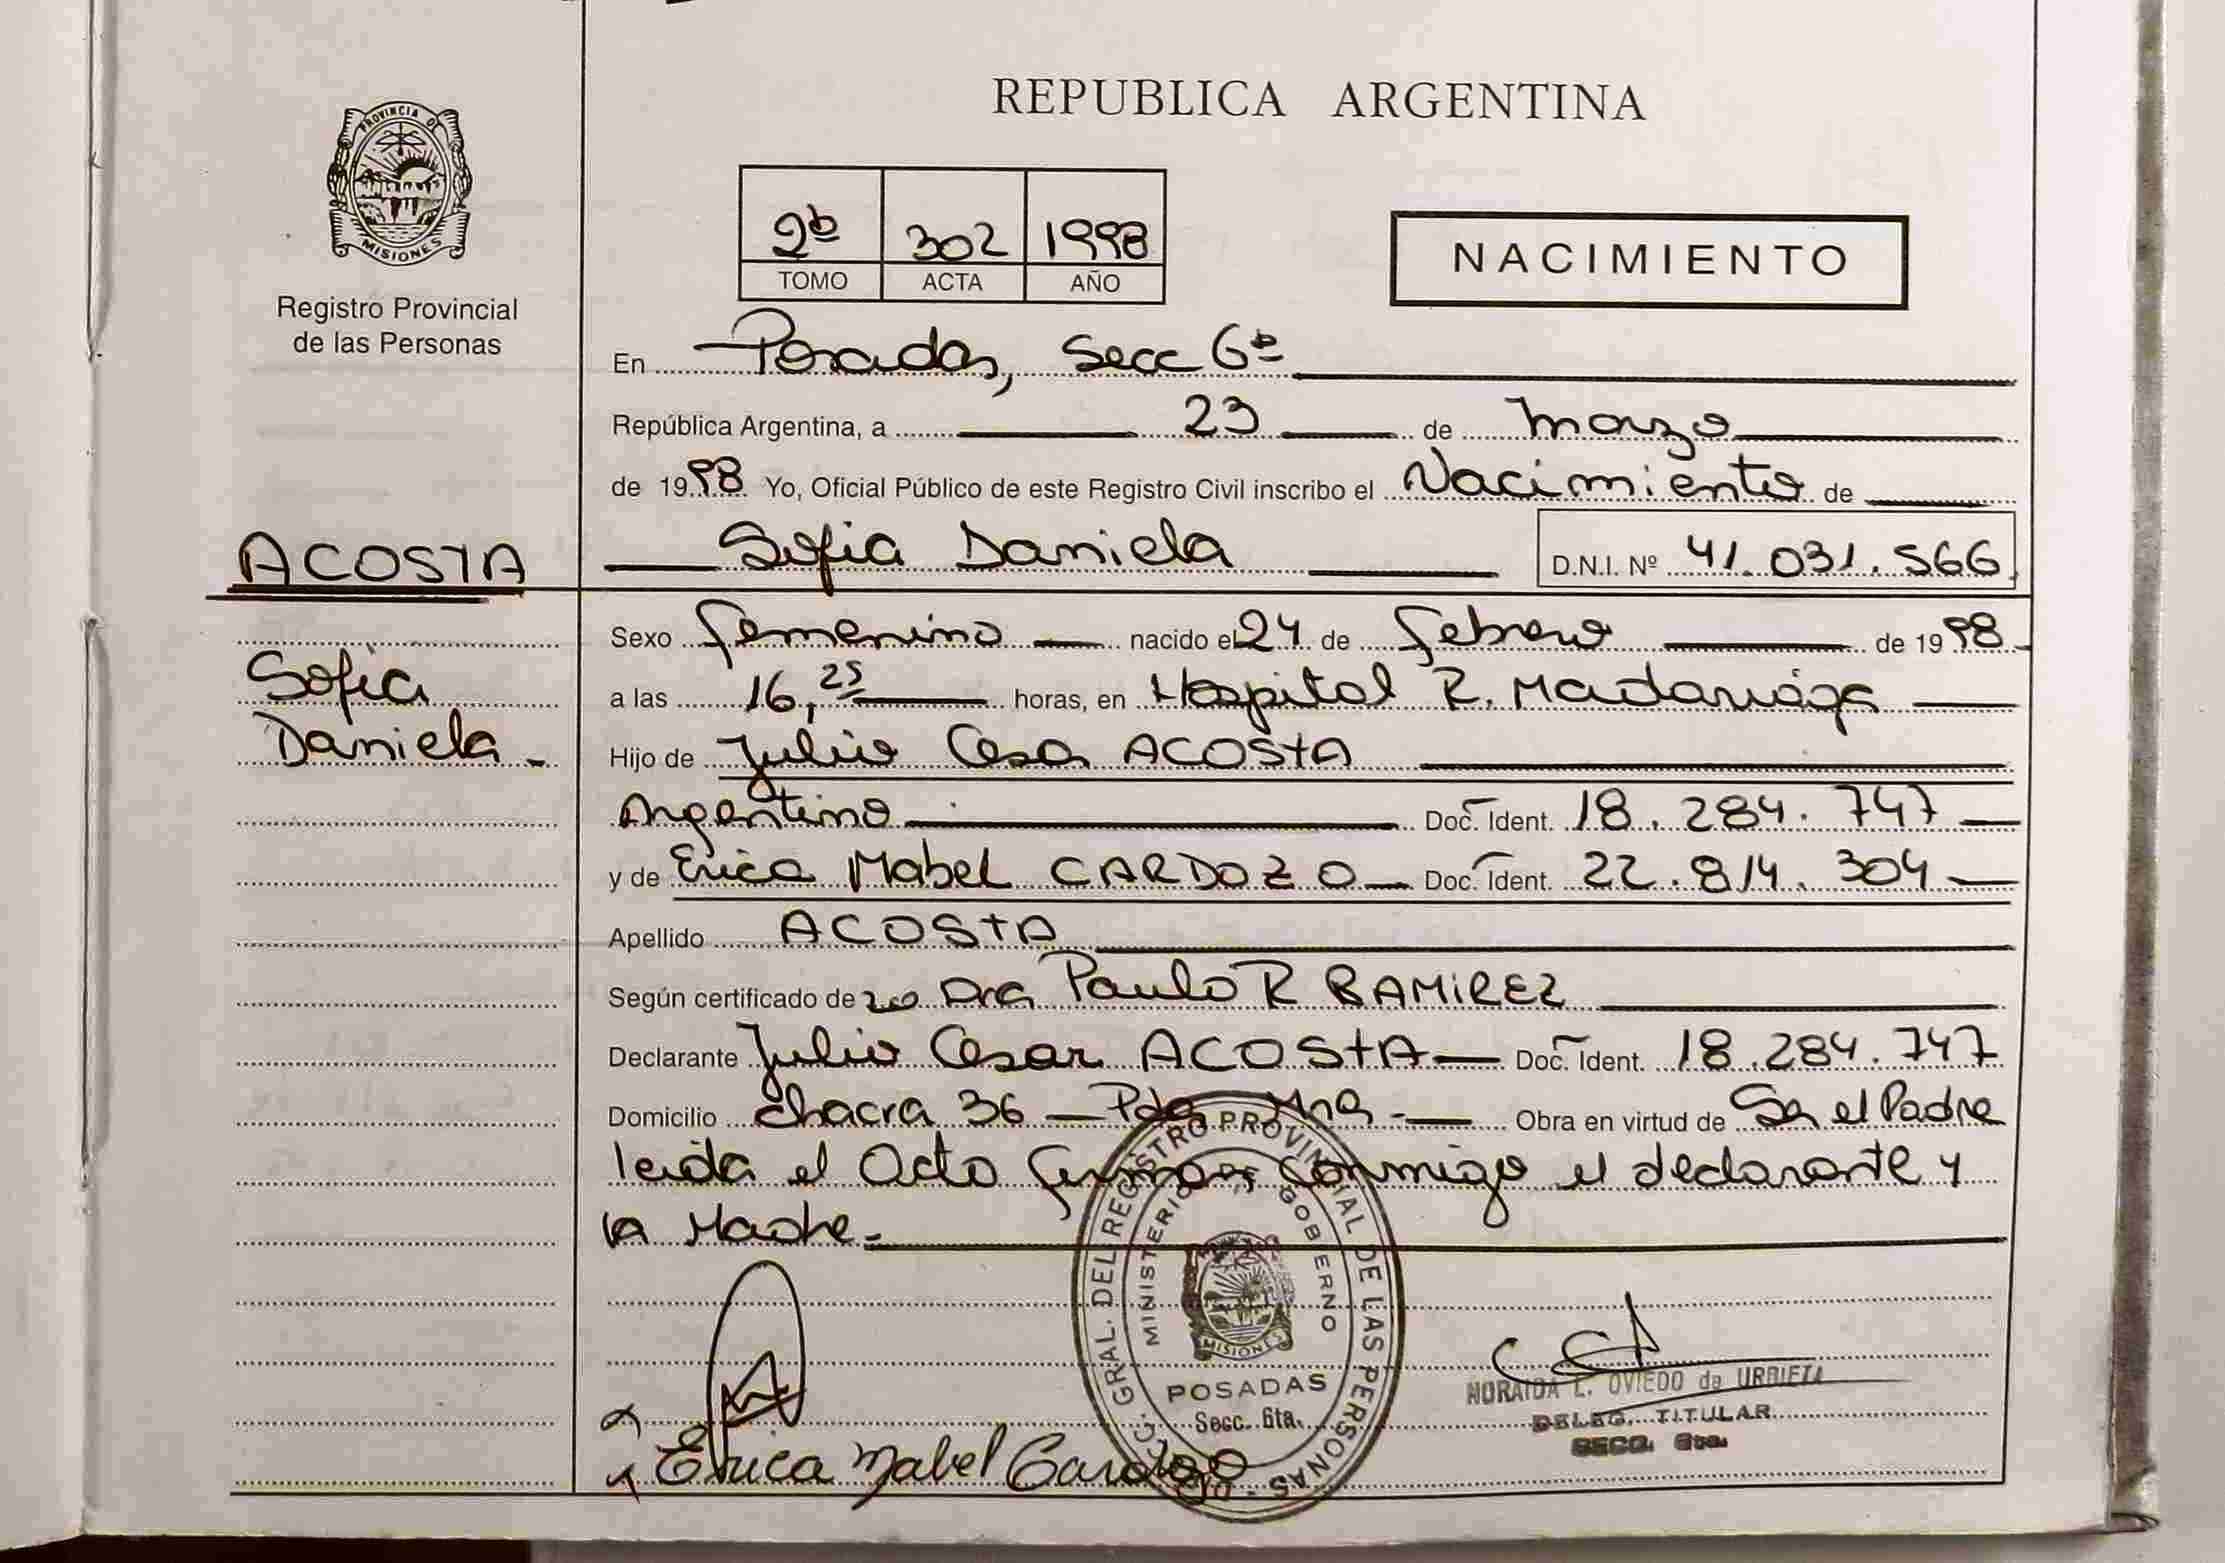 PROVINCIA D
MISIONES
Registro Provincial
de las Personas
ACOSTA
Sofia
Daniela -
REPUBLICA ARGENTINA
2º 302 1998
TOMO ACTA AÑO
NACIMIENTO
En Posadas, Secc 6ª
República Argentina, a 23 de marzo
de 1998 Yo, Oficial Público de este Registro Civil inscribo el Nacimiento de
Sofia Daniela D.N.I. Nº 41.031.566
Sexo femenino nacido el 24 de febrero de 1998
a las 16,25 horas, en Hospital R. Madariaga
Hijo de Julio Cesar ACOSTA
Argentino Doc. Ident. 18.284.747
y de Erica Mabel CARDOZO Doc. Ident. 22.814.304
Apellido ACOSTA
Según certificado de Dra Paulo R RAMIREZ
Declarante Julio Cesar ACOSTA Doc. Ident. 18.284.747
Domicilio Chacra 36 - Pdas Mns - Obra en virtud de Ser el Padre
leida el Acta firman conmigo el declarante y
la Madre.-
DCC. GRAL. DEL REGISTRO PROVINCIAL DE LAS PERSONAS
MINISTERIO GOBERNO
MISIONES
POSADAS
Secc. 6ta.
NORAIDA L. OVIEDO de URRIETA
DELEG. TITULAR
SECC. 6ta.
Erica Mabel Cardozo